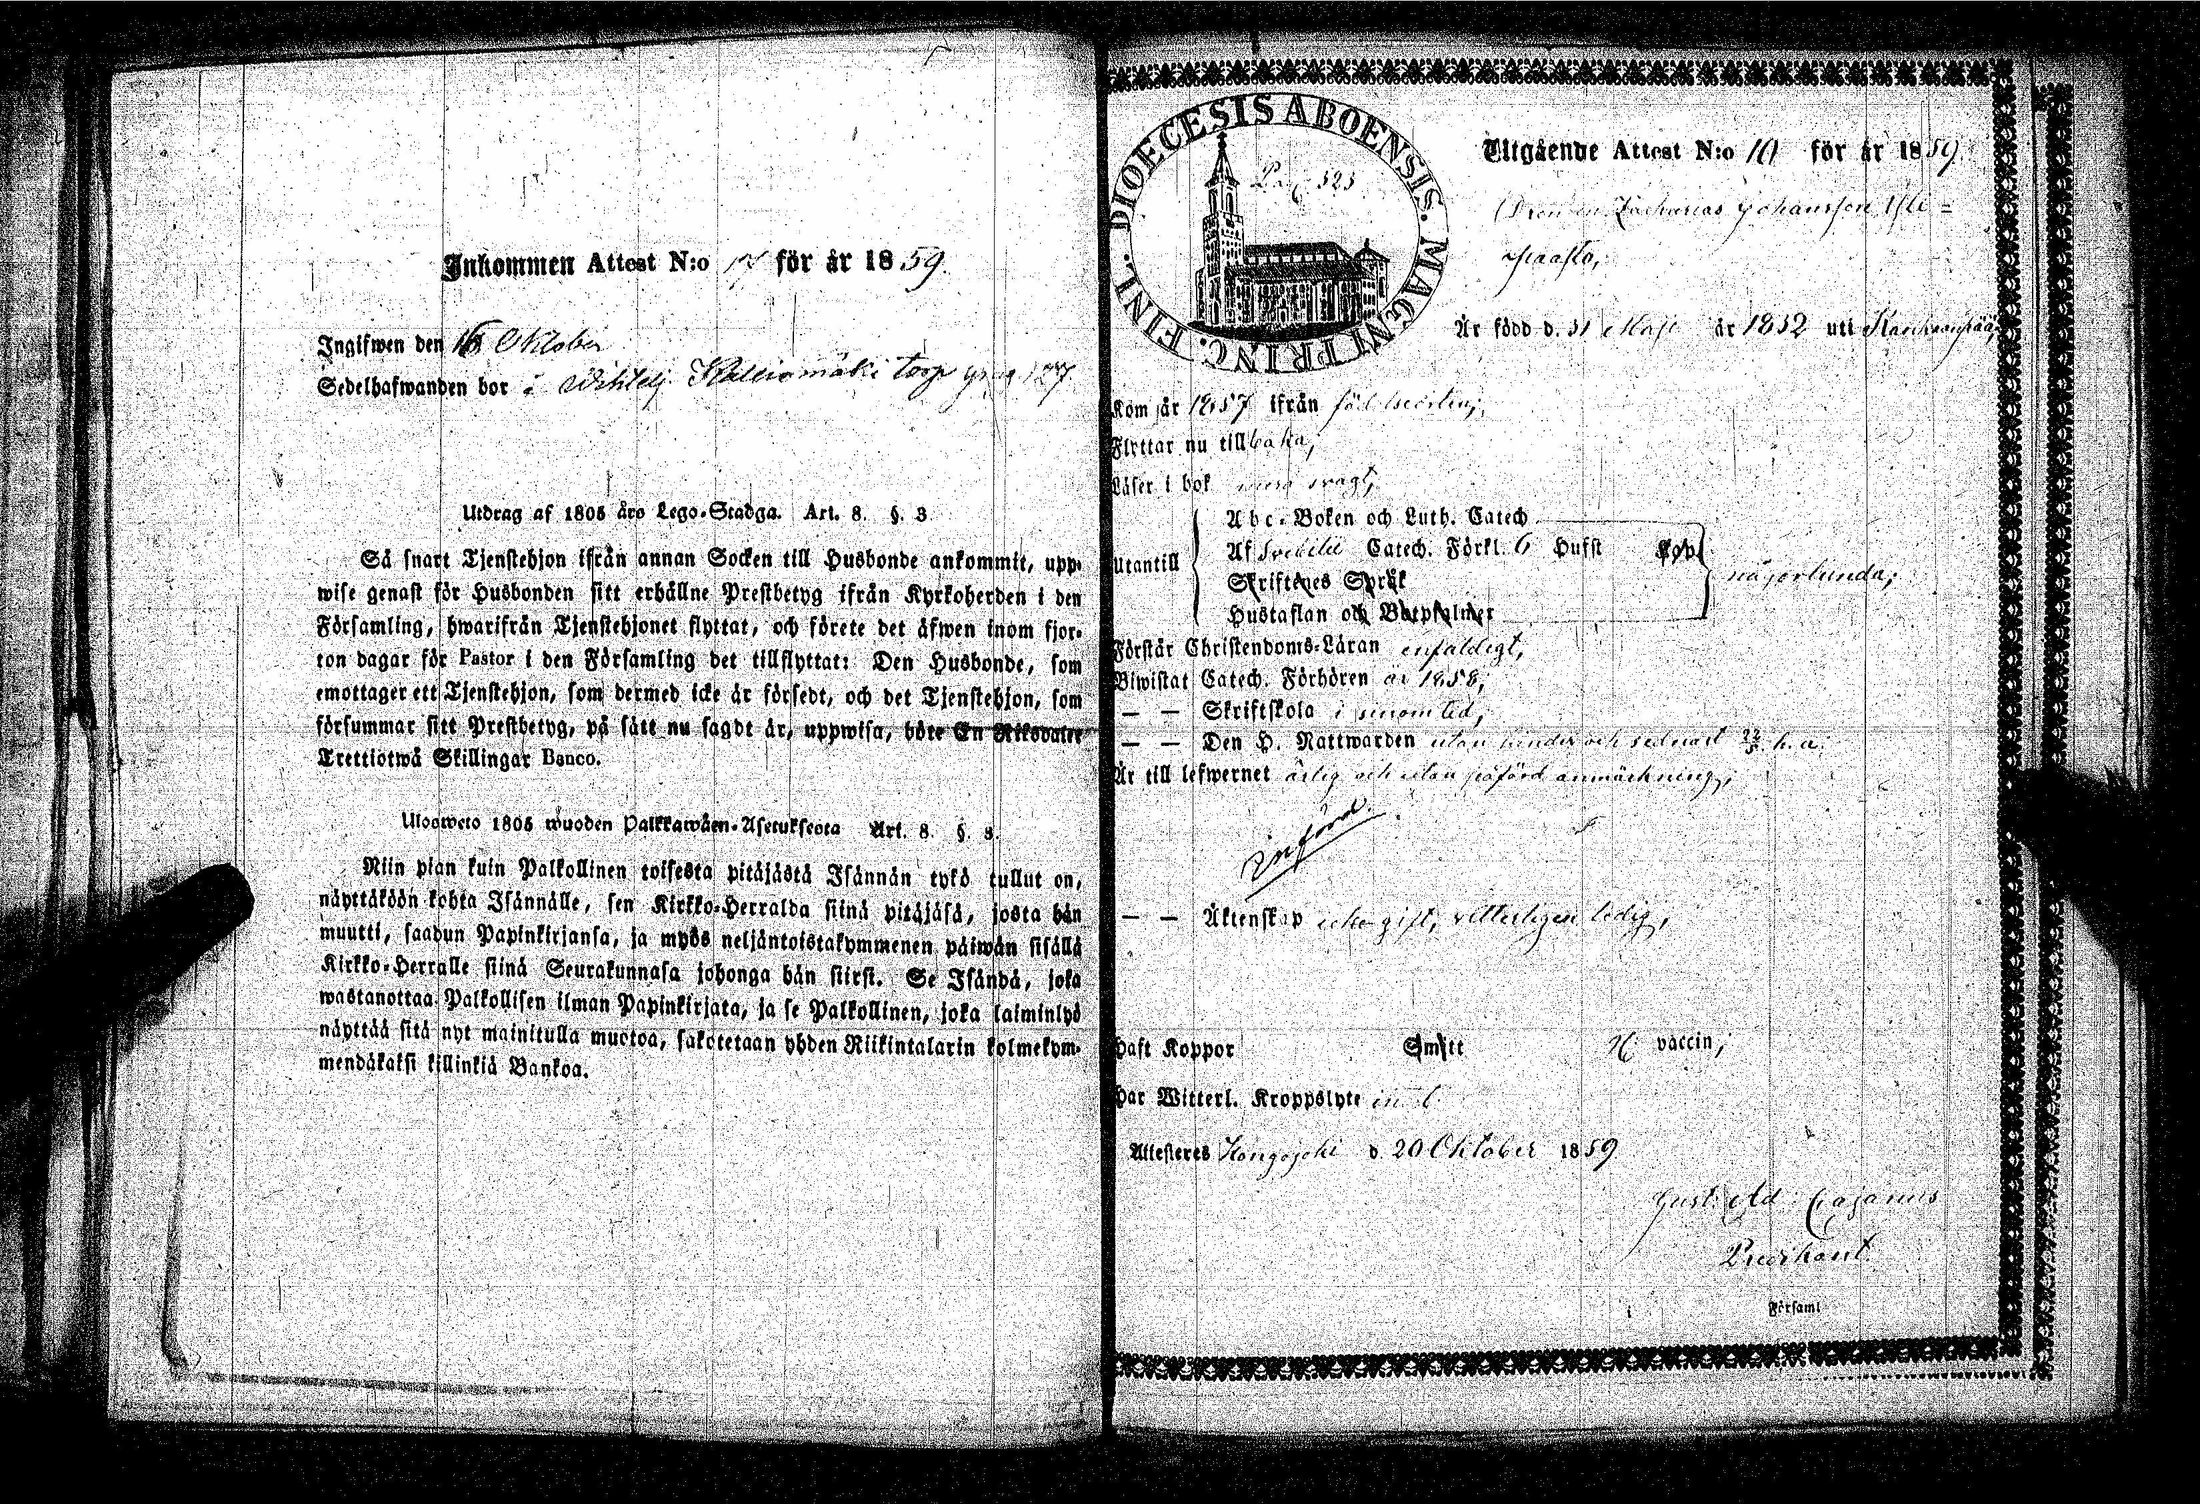 Inkommen Attest N:o 17 för år 1859.
Ingifwen den 16 Oktober
Sedelhafwanden bor i Kalliomäki torp 127
Utdrag af 1805 års Lego-Stadga. Art. 8. §. 3
Så snart Tjenstehjon ifrån annan Socken till Husbonde ankommit, upp-
wise genast för Husbonden sitt erhållne Prestbetyg ifrån Kyrkoherden i den
Församling, hwarifrån Tjenstehjonet flyttat, och förete det äfwen inom fjor-
ton dagar för Pastor i den Församling det tillflyttat: Den Husbonde, som
emottager ett Tjenstehjon, som dermed icke är försedt, och det Tjenstehjon, som
försummar sitt Prestbetyg, på sätt nu sagdt är, uppwisa, böte En Riksdaler
Trettiotwå Skillingar Banco.
Ulosweto 1805 wuoden Palkkawäen-Asetuksesta Art. 8. §. 3.
Niin pian kuin Palkollinen toisesta pitäjästä Isännän tykö tullut on,
näyttäköön kohta Isännälle, sen Kirkko-Herralda siinä pitäjäsä, josta hän
muutti, saadun Papinkirjansa, ja myös neljäntoistakymmenen päiwän sisällä
Kirkko-Herralle siinä Seurakunnasa johonga hän siirsi. Se Isändä, joka
wastanottaa Palkollisen ilman Papinkirjata, ja se Palkollinen, joka laiminlyö
näyttää sitä nyt mainitulla muotoa, sakotetaan yhden Riikintalarin kolmekym-
mendäkaksi killinkiä Bankoa.
DIOECESIS ABOENSIS. MAGNI PRINC. FINL.
Pag 323
Utgående Attest N:o 101 för år 1859.
Drengen Zacharias Johansson Yli-
spaasto,
Är född d. 31 Maji år 1832 uti Kankaanpää,
Kom år 1857 ifrån födelseorten;
Flyttar nu tillbaka;
Läser i bok svagt,
Utantill
Abc-Boken och Luth. Catech
Af Svebilii Catech. Förkl. 6 Hufst
Skriftenes Språk
Hustaflan och Botpsalmer
någorlunda;
Förstår Christendoms-Läran enfaldigt,
Biwistat Catech. Förhören år 1858,
— — Skriftskola i sinom tid,
— — Den H. Nattwarden utan hinder och sednast 22/5 h. a.
Är till lefwernet ärlig och utan påförd anmärkning,
Införd.
— — Äktenskap icke gift, vitterligen ledig,
Haft Koppor Smitt vaccin;
Har Witterl. Kroppslyte
Attesteres Hongojoki d. 20 Oktober 1859
Gust. Ad. Cajanus
Predikant.
i Församl